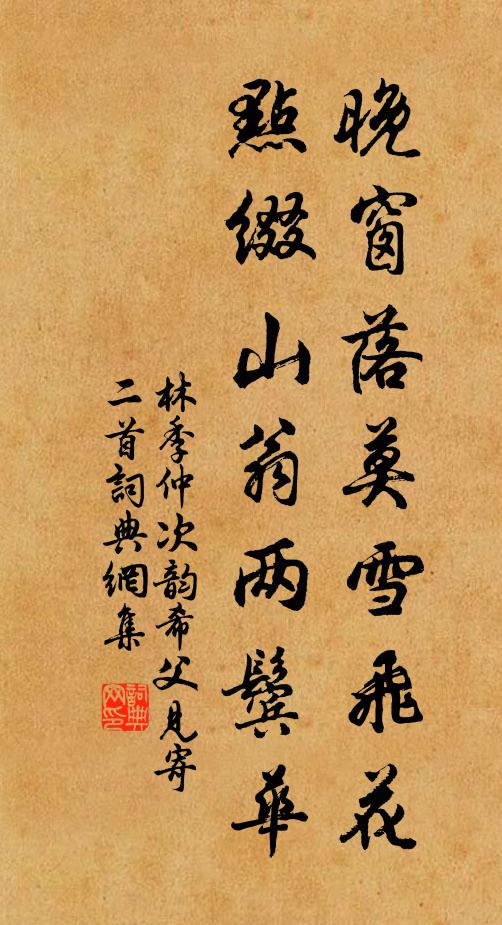 晚窗落莫雪飛花
點綴山翁两鬢華
林季仲次韵希父見寄
二首詞典網集
詞典
网印